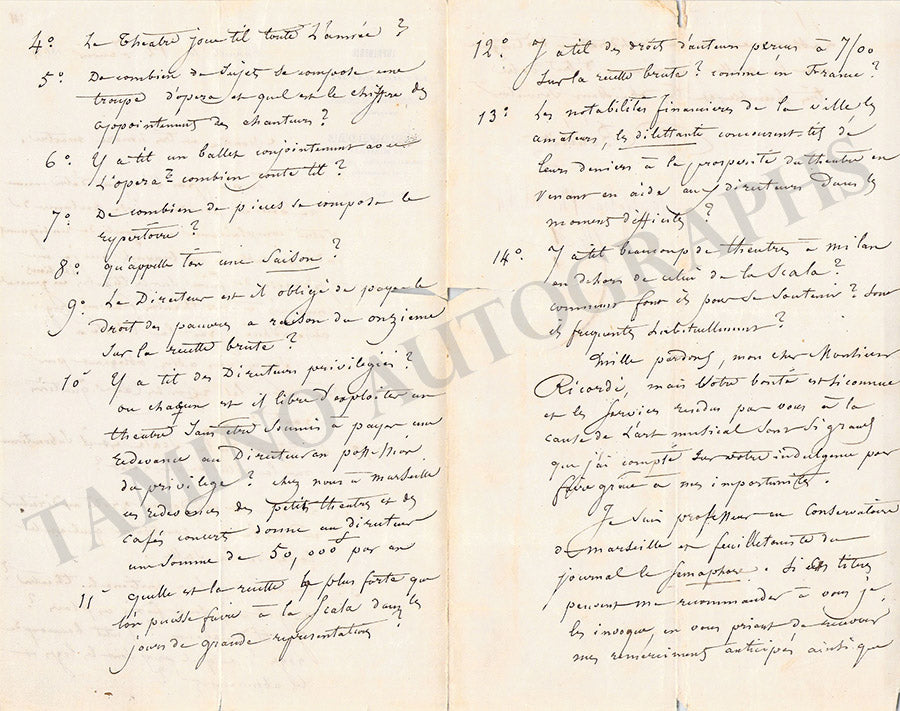 4º Le Théatre joue til toute L'année ?
5º De combien de Sujets se compose une
troupe d'opera et quel est le chiffre des
appointements des chanteurs ?
6º Y a til un ballet conjointement avec
L'opera ? combien coute til ?
7º De combien de pieces se compose le
repertoire ?
8º qu'appelle t'on une Saison ?
9º Le Directeur est il obligé de payer le
droit des pauvres a raison du onzieme
Sur la recette brute ?
10º Y a til des Directeurs privilégiés ?
ou chaqun est il libre d'exploiter un
théatre Sans être Soumis à payer une
redevance au Directeur en possession
du privilege ? chez nous à marseille
ces redevances des petits théatres et des
cafés concerts donne au directeur
une Somme de 50,000f par an
11º quelle est la recette la plus forte que
l'on puisse faire à la Scala dans les
jours de grande representation ?
12º Y a til des droits d'auteurs perçus à 7/00
Sur la recette brute ? comme en France ?
13º Les notabilités financieres de la ville les
amateurs, les dilettanti concourent-ils de
leurs deniers à la prosperité du théatre en
venant en aide aux directeurs Dans les
moments difficiles ?
14º Y a til beaucoup de théatres à milan
en dehors de celui de la Scala ?
comment font ils pour se Soutenir ? Sont
ils frequentés habituellement ?
Mille pardons, mon cher Monsieur
Ricordi, mais Votre bonté est si connue
et les Services rendus par vous à la
cause de L'art musical Sont Si grands
que j'ai compté Sur votre indulgence pour
faire grâce à mes importunités.
Je Suis professeur au Conservatoire
de marseille et feuilletoniste du
journal le Semaphore. Si ces titres
peuvent me recommander à vous je
les invoque, en vous priant de recevoir
mes remerciments anticipés ainsi que
TAMINO AUTOGRAPHS